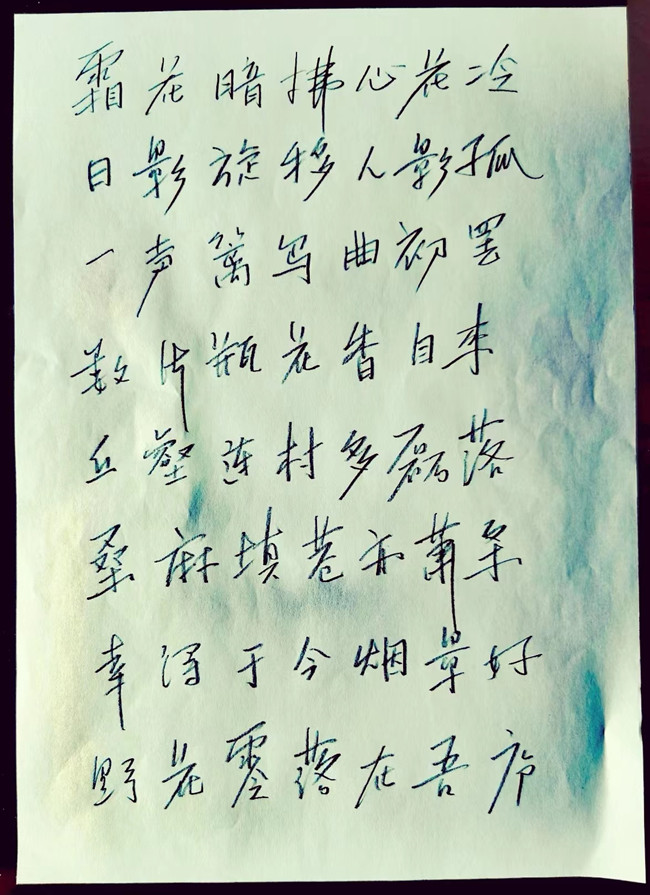 霜花暗拂心花冷
日影旋移人影孤
一声篱鸟曲初罢
数片瓶花香自来
丘壑连村多磊落
桑麻填巷亦萧条
幸得于今烟景好
野花零落在吾庐